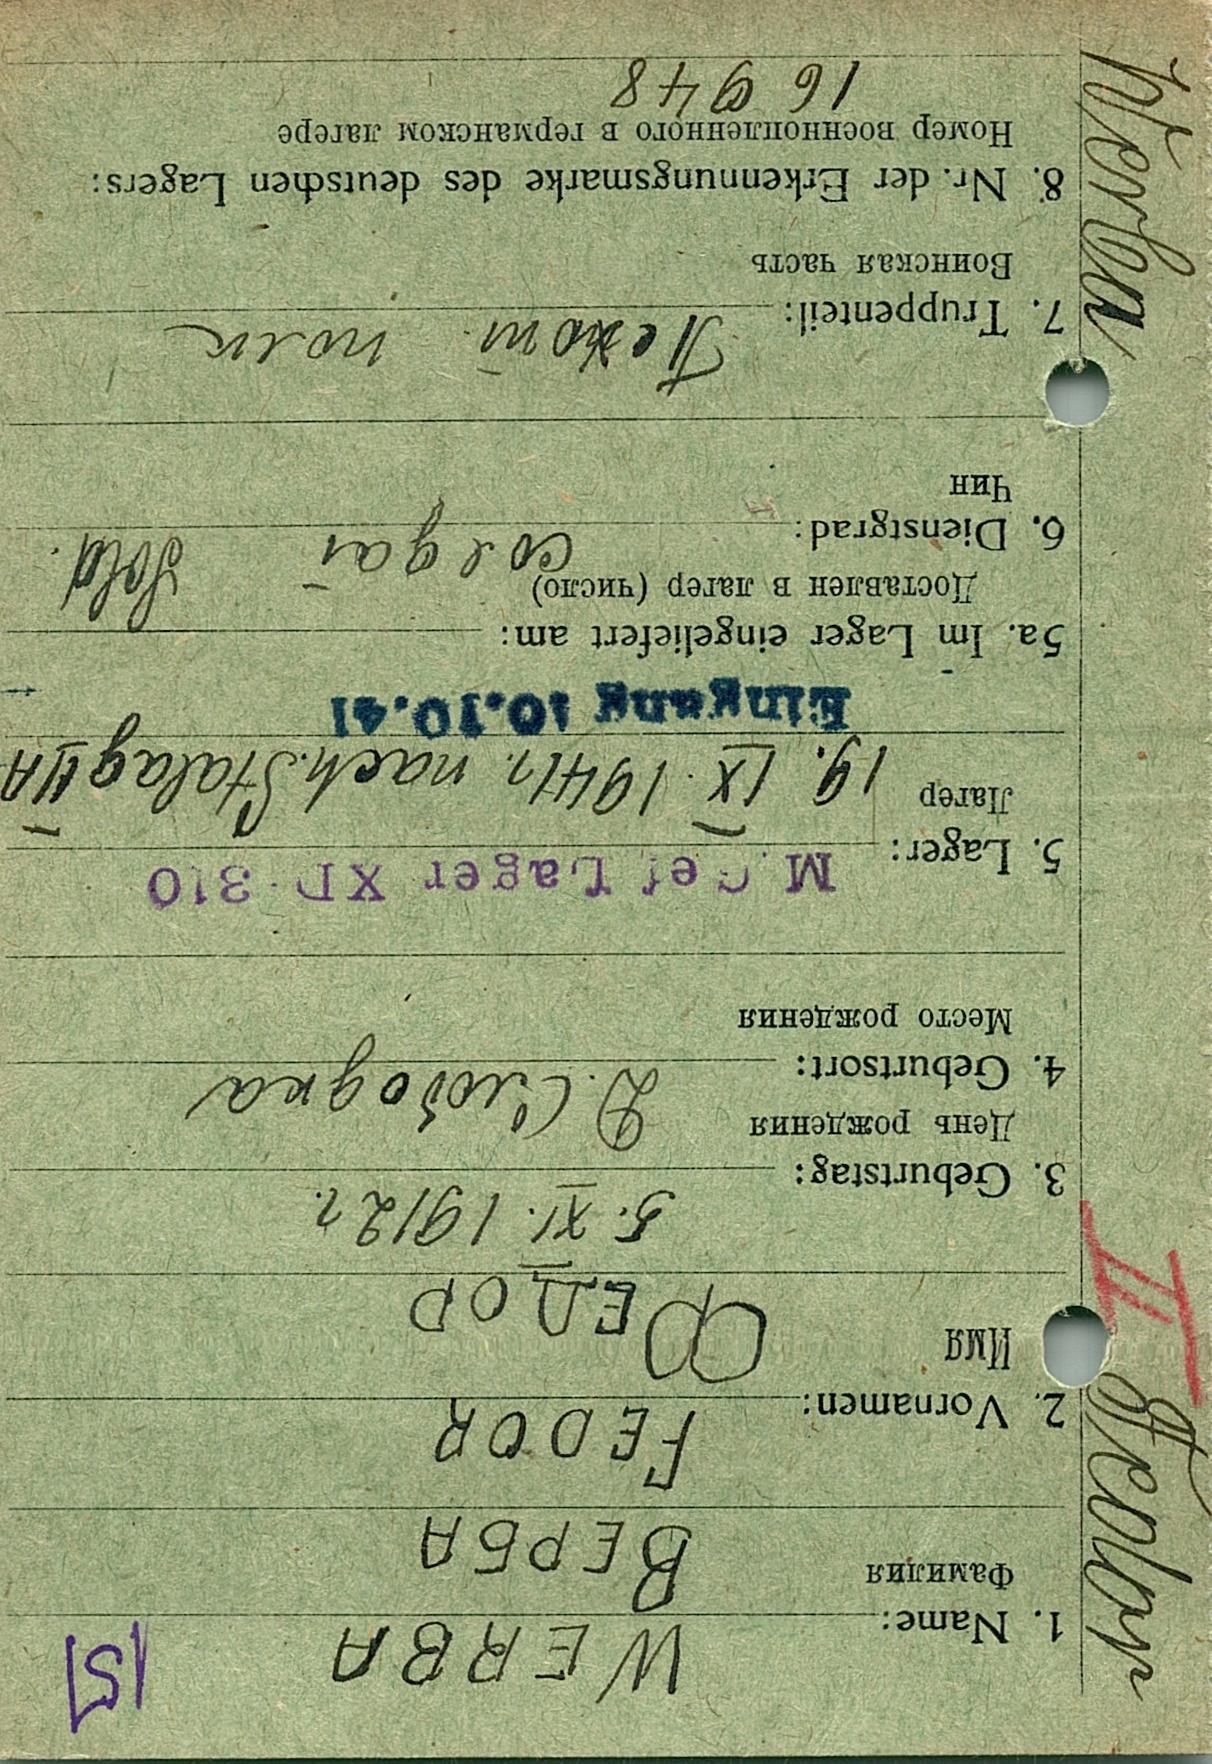 |S|
WERBA
1. Name:
Фамилия
ВЕРБА
FEDOR
2. Vornamen:
Имя
ФЕДОР
5. XI. 1912 г.
3. Geburtstag:
День рождения
Д. Слободка
4. Geburtsort:
Место рождения
M Gef Lager XD 310
5. Lager:
Лагер
19. IX. 1941 г. nach. Stalag II A
Eingang 10.10.41
5a. Im Lager eingeliefert am:
Доставлен в лагер (число)
6. Dienstgrad: солдат Sold.
Чин
Пехот. полк
7. Truppenteil:
Воинская часть
8. Nr. der Erkennungsmarke des deutschen Lagers:
Номер военнопленного в германском лагере
16948
Fedor
II
Werba